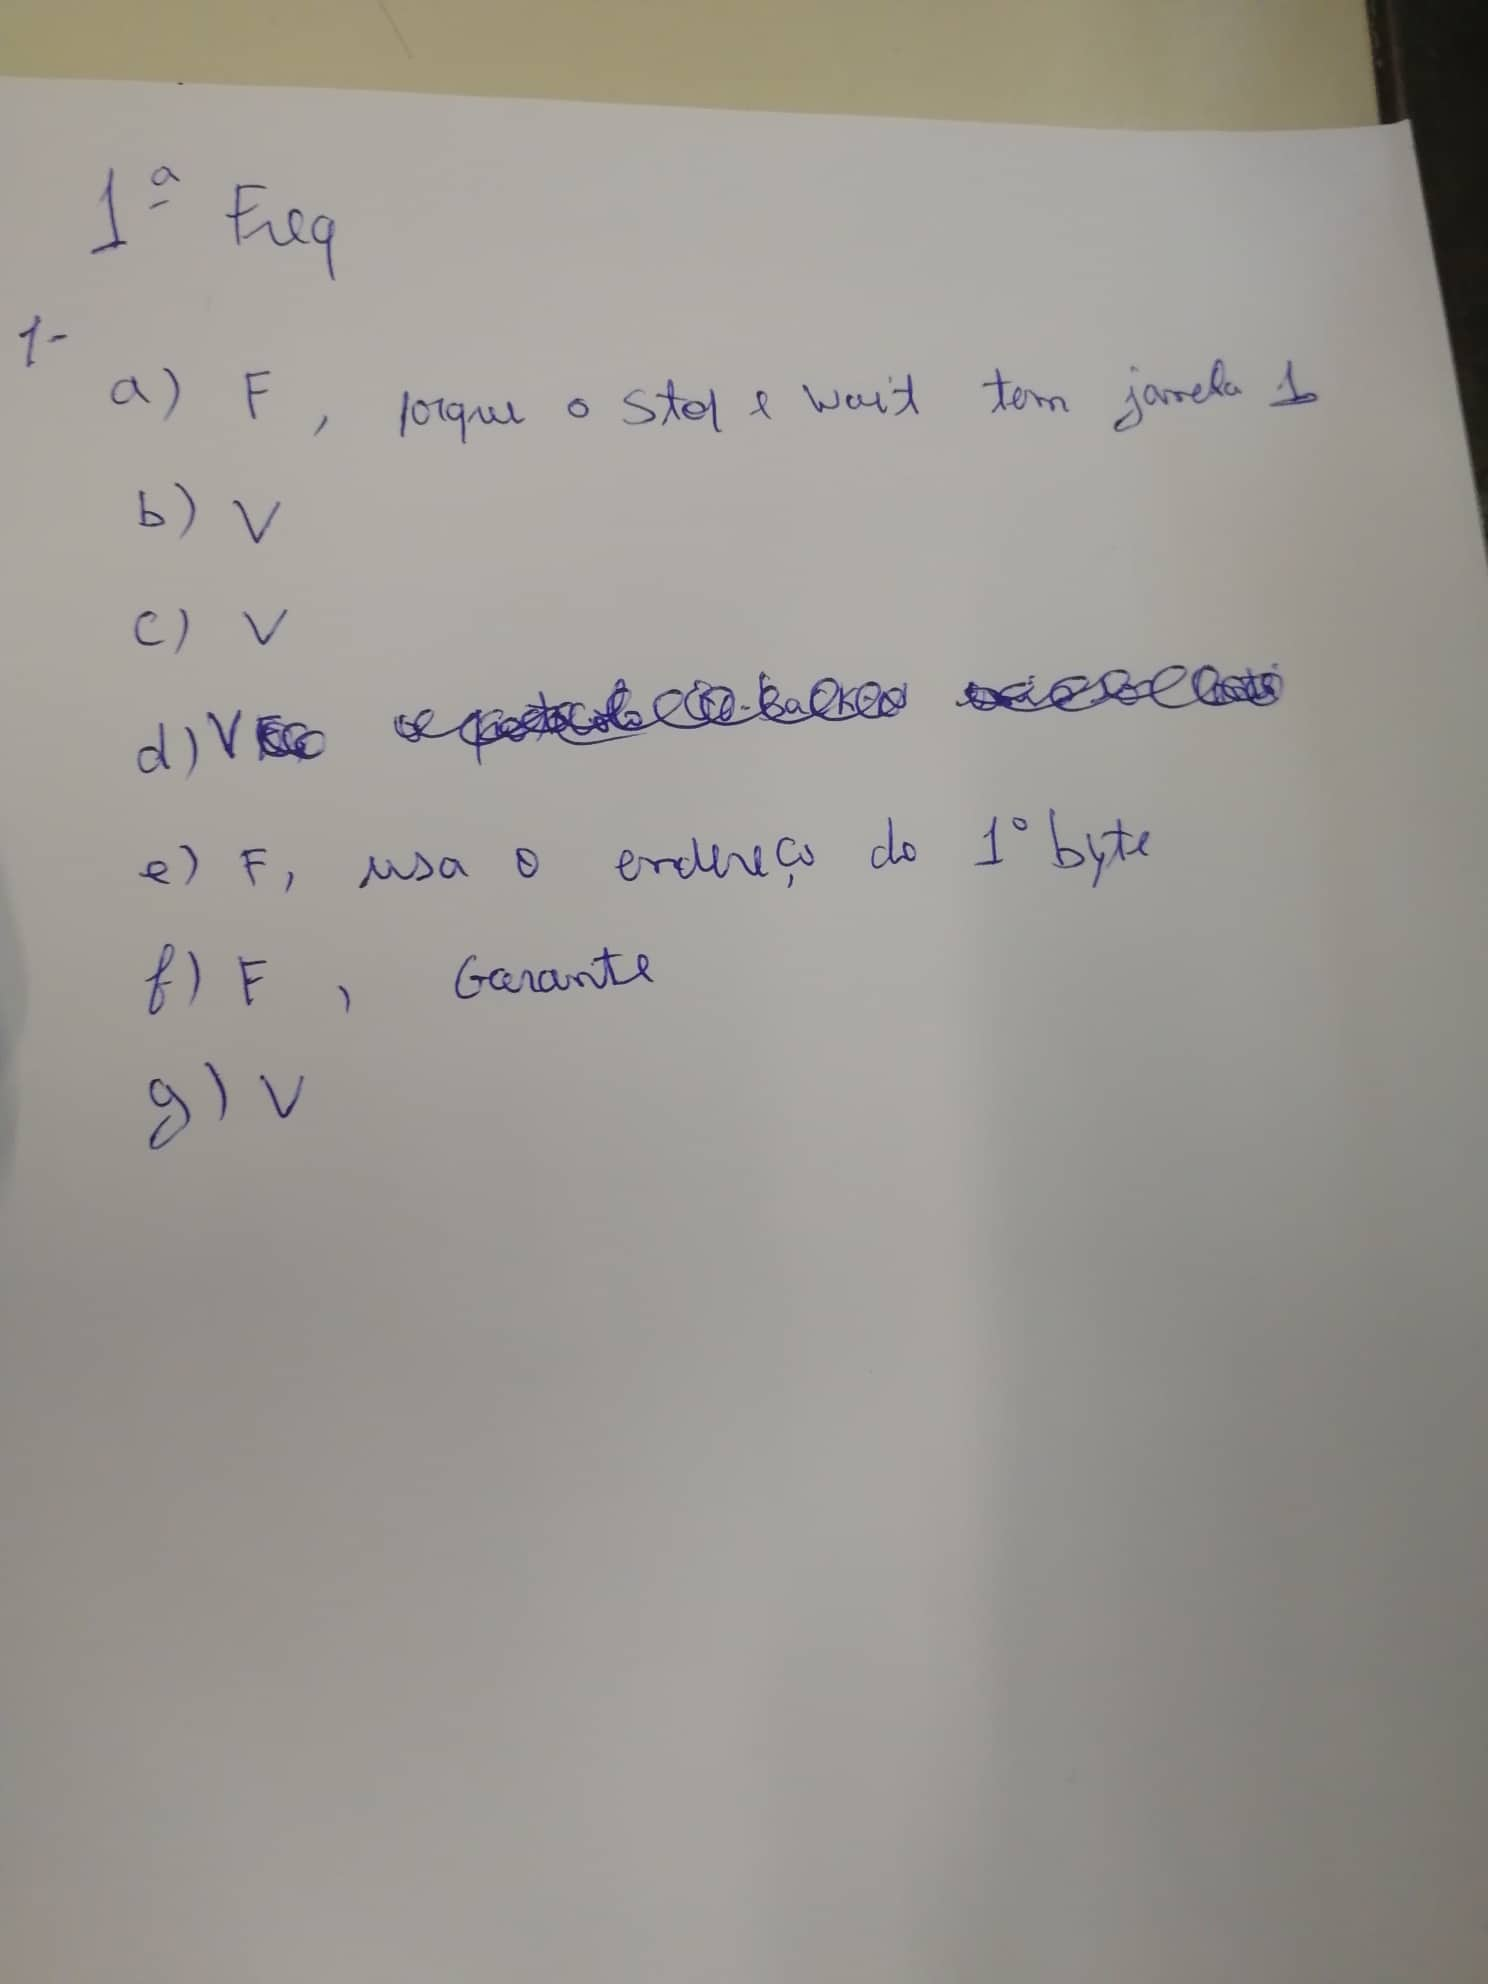 1ª Freq
1-
a) F, porque o Stop e wait tem janela 1
b) V
c) V
d) V
e) F, usa o endereço do 1º byte
f) F, Garante
g) V